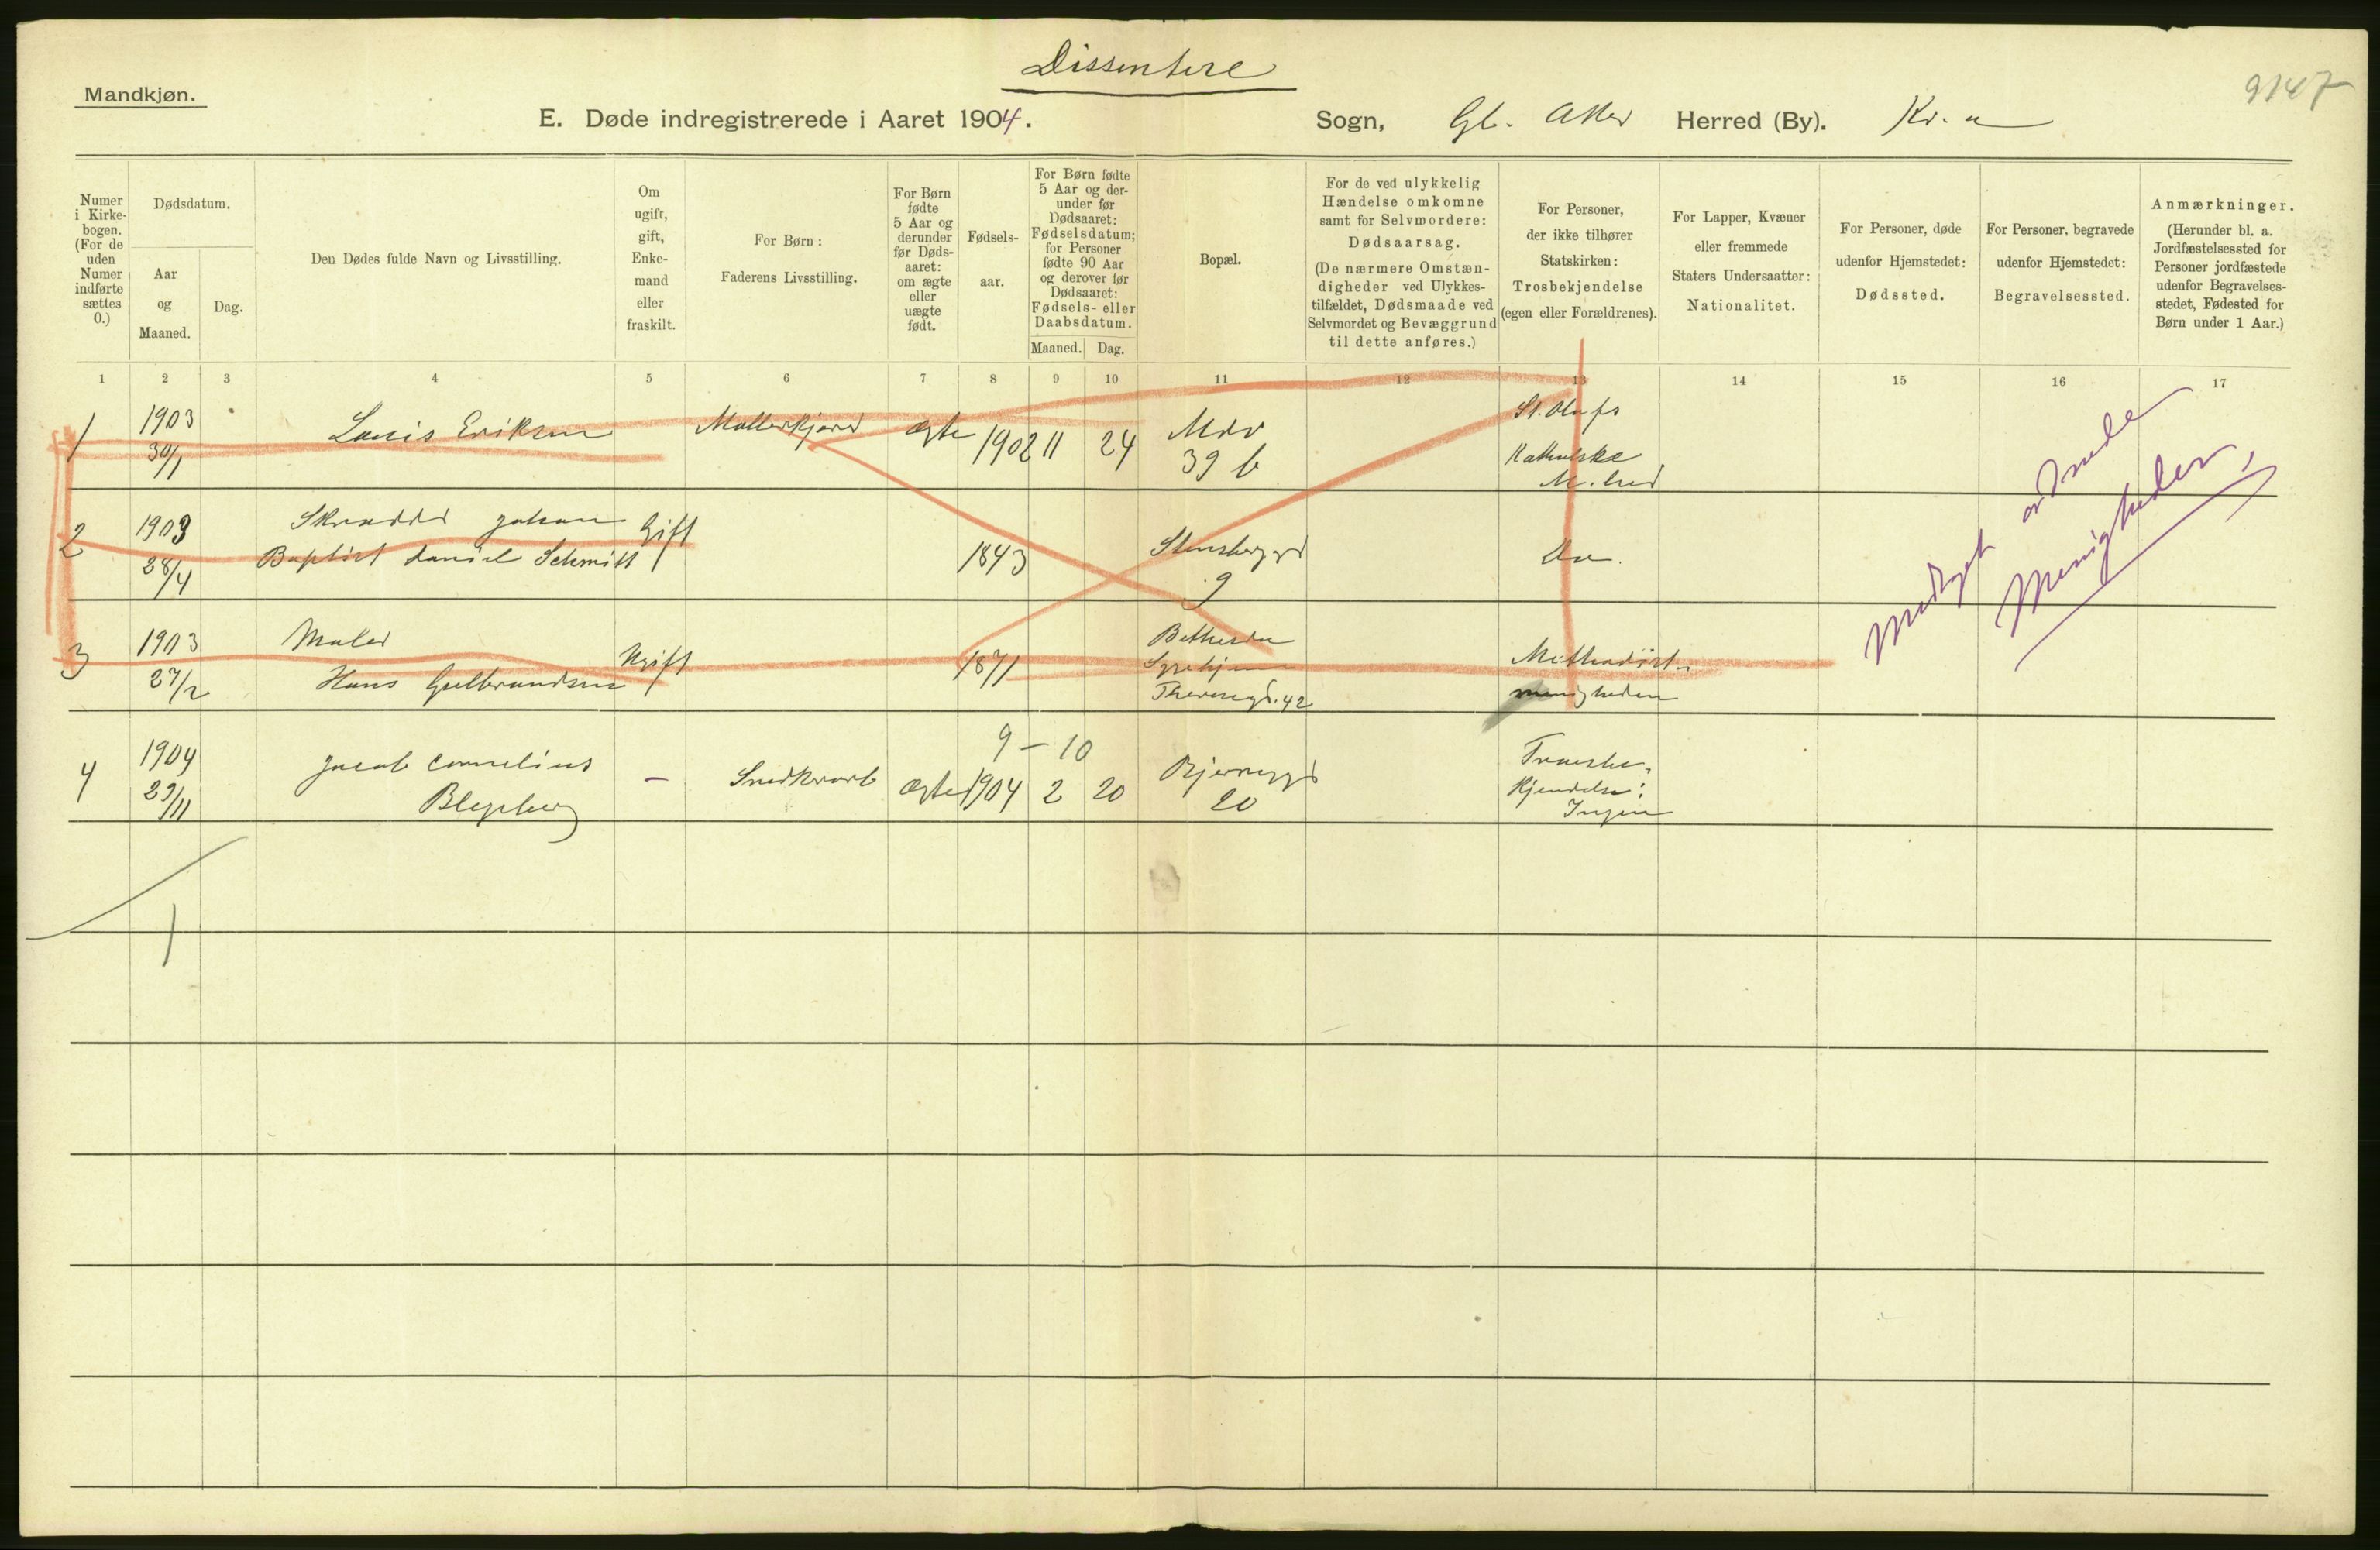 Dissentere
9147
Mandkjøn.
E. Døde indregistrerede i Aaret 1904. Sogn, Gl. Aker Herred (By). Kr.a
Numer i Kirkebogen. (For de uden Numer indførte sættes 0.)
Dødsdatum.
Aar og Maaned.
Dag.
Den Dødes fulde Navn og Livsstilling.
Om ugift, gift, Enkemand eller fraskilt.
For Børn: Faderens Livsstilling.
For Børn fødte 5 Aar og derunder før Dødsaaret: om ægte eller uægte født.
Fødselsaar.
For Børn fødte 5 Aar og derunder før Dødsaaret: Fødselsdatum; for Personer fødte 90 Aar og derover før Dødsaaret: Fødsels- eller Daabsdatum.
Maaned. Dag.
Bopæl.
For de ved ulykkelig Hændelse omkomne samt for Selvmordere: Dødsaarsag. (De nærmere Omstændigheder ved Ulykkestilfældet, Dødsmaade ved Selvmordet og Bevæggrund til dette anføres.)
For Personer, der ikke tilhører Statskirken: Trosbekjendelse (egen eller Forældrenes).
For Lapper, Kvæner eller fremmede Staters Undersaatter: Nationalitet.
For Personer, døde udenfor Hjemstedet: Dødssted.
For Personer, begravede udenfor Hjemstedet: Begravelsessted.
Anmærkninger. (Herunder bl. a. Jordfæstelsessted for Personer jordfæstede udenfor Begravelsesstedet, Fødested for Børn under 1 Aar.)
1 2 3 4 5 6 7 8 9 10 11 12 13 14 15 16 17
1 1903 30/1 Louis Eriksen Møllerkjører Ægte 1902 11 24 39 b St. Olafs Katholske M.hed
2 1903 28/4 Skrædder Johan Baptist Daniel Schmitt Gift 1843 Stensberggd 9 Do.
3 1903 27/2 Maler Hans Gulbrandsen Ugift 1871 Bethesda Sygehjem Theresegd. 42 Methodistmenigheden
9 – 10
4 1904 29/11 Jacob Cornelius – Snedkerarb Ægte 1904 2 20 Bjerregd 20 Troesbekjendelse: Ingen
Medtaget
Menigheder
1